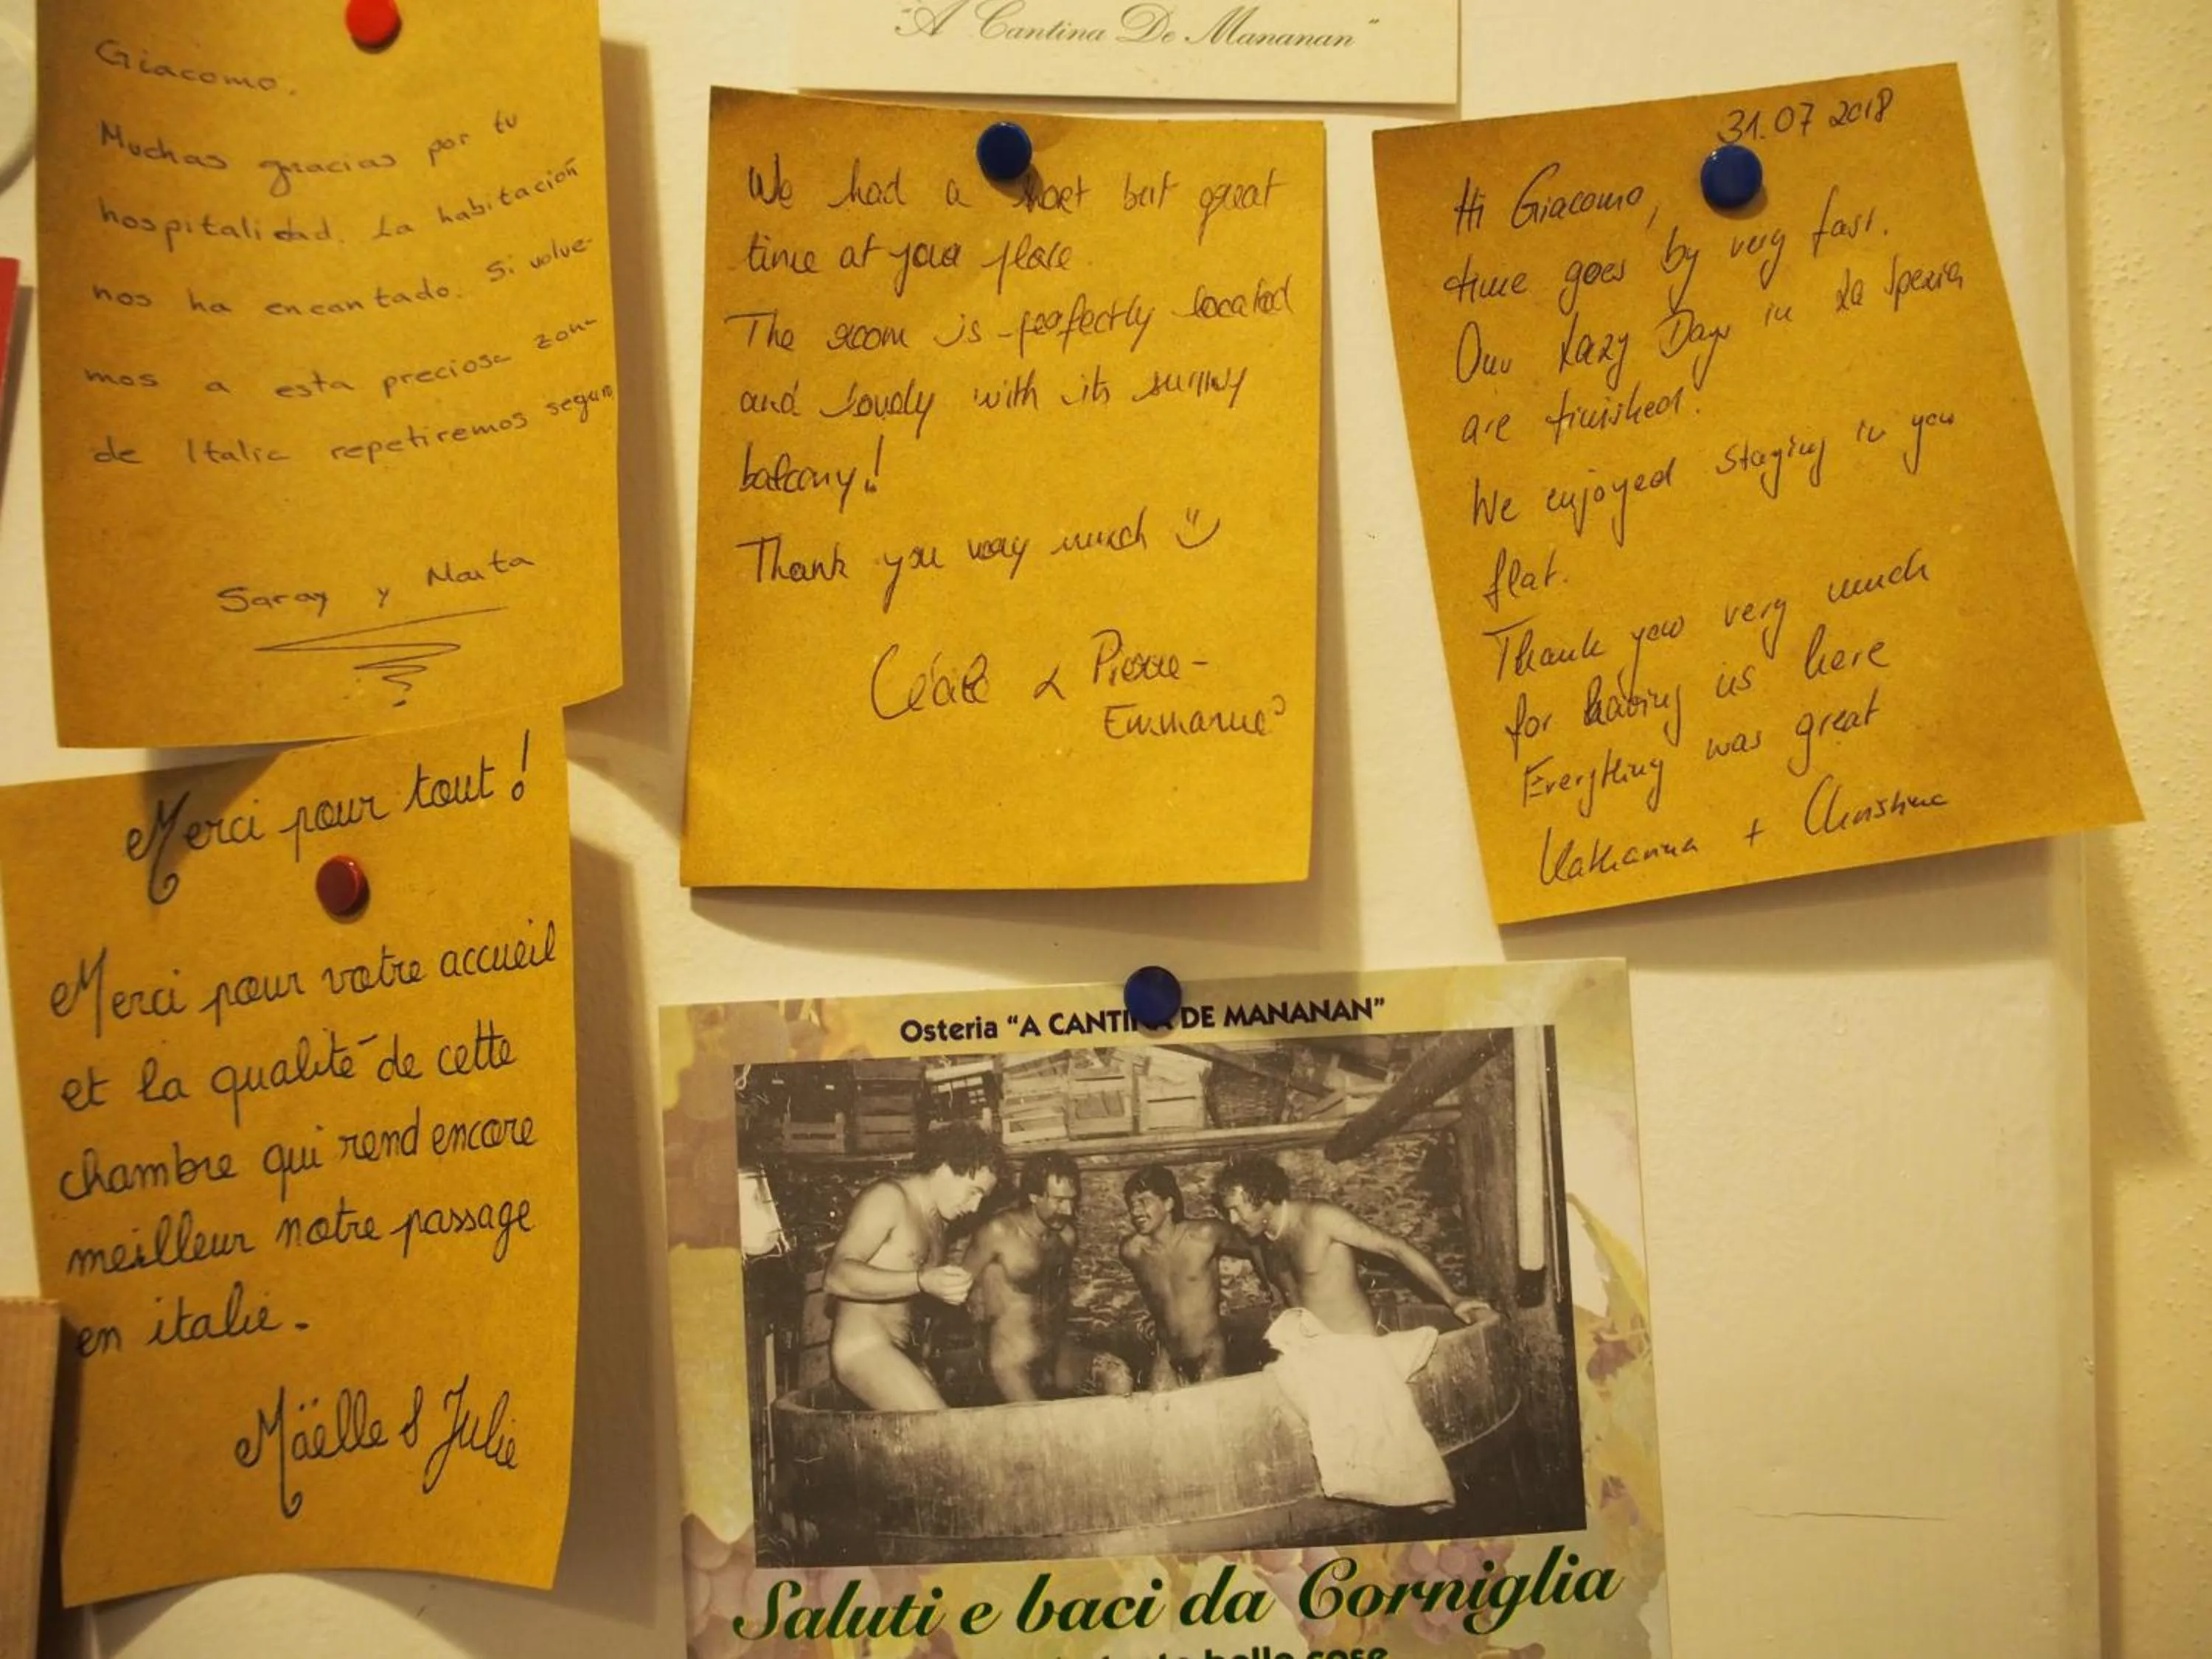 "A Cantina De Mananan"
Giacomo.
Muchas gracias por tu
hospitalidad. La habitación
nos ha encantado. Si volve-
mos a esta preciosa zon-
de Italia repetiremos seguro
Saray y Marta
We had a short but great
time at your place.
The room is perfectly located
and lovely with its sunny
balcony!
Thank you very much
Cécile & Pierre-
Emmanuel
31.07 2018
Hi Giacomo,
time goes by very fast.
Our Lazy Days in La Spezia
are finished!
We enjoyed staying in you
flat.
Thank you very much
for having us here
Everything was great
Katharina + Christina
Merci pour tout !
Merci pour votre accueil
et la qualité de cette
chambre qui rend encore
meilleur notre passage
en italie.
Maëlle & Julie
Osteria "A CANTINA DE MANANAN"
Saluti e baci da Corniglia
belle cose